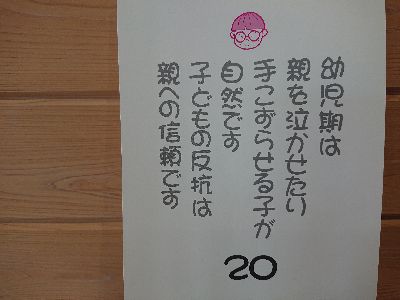 幼児期は
親を泣かせたい
手こずらせる子が
自然です
子どもの反抗は
親への信頼です
20